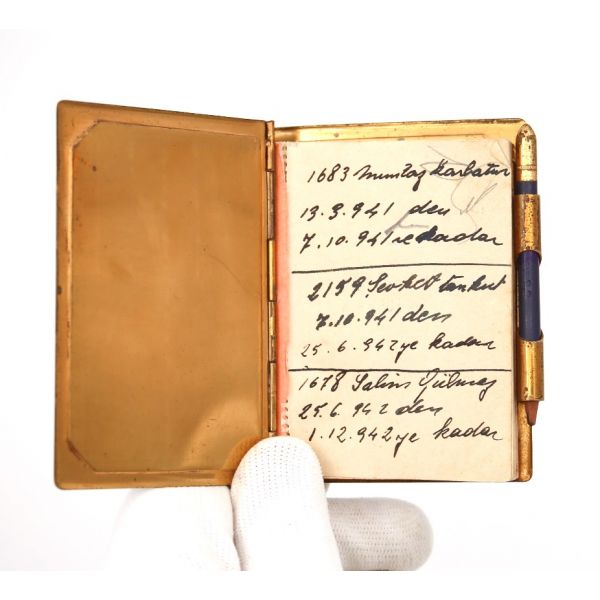 1683 Mümtaz Karbatur
13.3.941 den
7.10.941 re kadar
2159 Şevket tankut
7.10.941 den
25.6.942 ye kadar
1678 Salim Gülmez
25.6.942 den
1.12.942 ye kadar